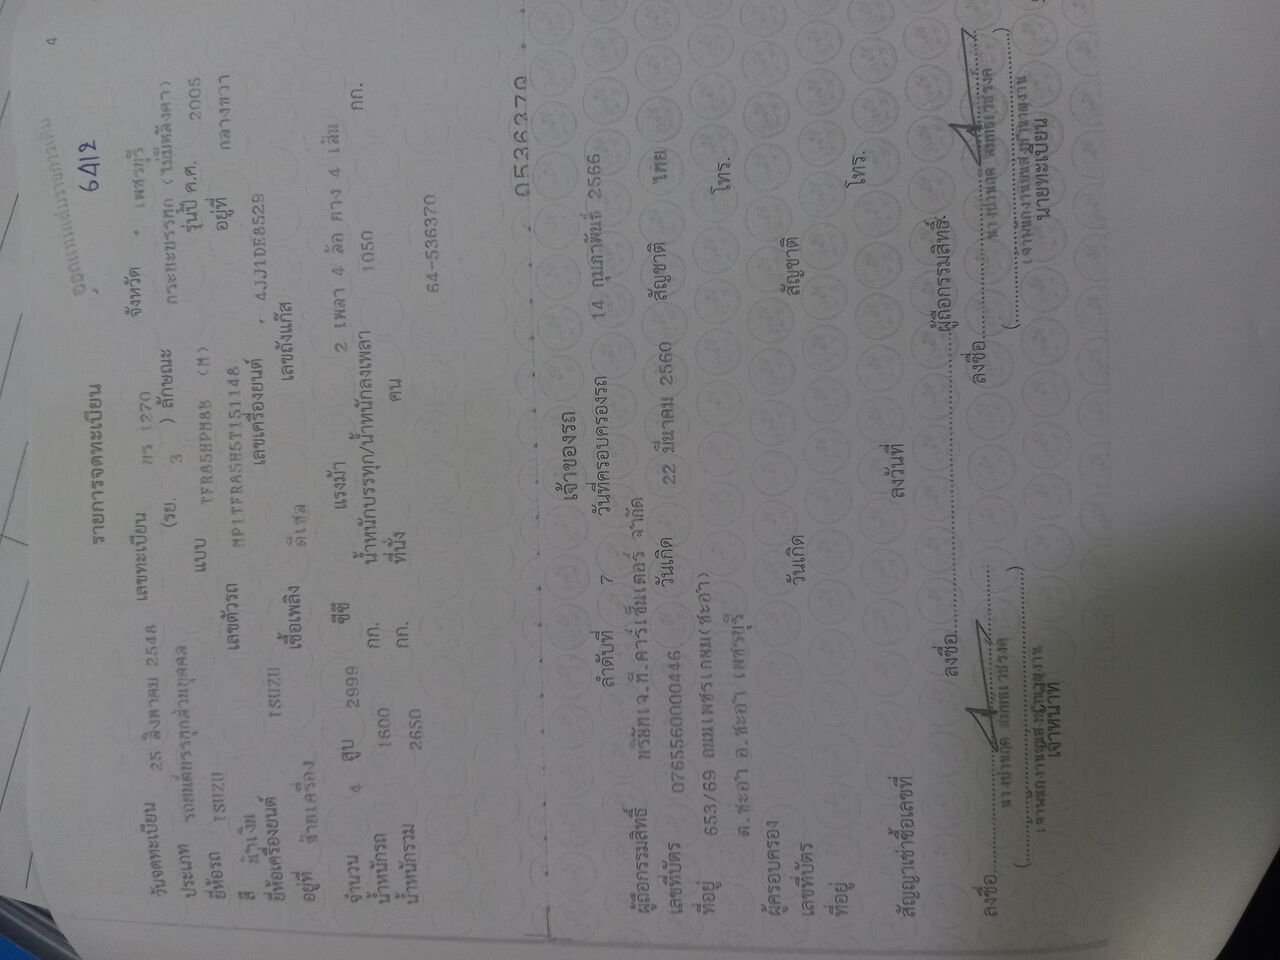 4
ออกแทนเล่มรายการเต็ม
6412
รายการจดทะเบียน
วันจดทะเบียน 25 สิงหาคม 2548 เลขทะเบียน 1270 จังหวัด เพชรบุรี
ประเภท รถยนต์บรรทุกส่วนบุคคล (รย. 3 ) ลักษณะ กระบะบรรทุก (ไม่มีหลังคา)
ยี่ห้อรถ ISUZU แบบ TFR85HPM8B (M) รุ่นปี ค.ศ. 2005
สี น้ำเงิน เลขตัวรถ MP1TFR85H5T151148 อยู่ที่ กลางขวา
ยี่ห้อเครื่องยนต์ ISUZU เลขเครื่องยนต์ 4JJ1DE8529
อยู่ที่ ซ้ายเครื่อง เชื้อเพลิง ดีเซล เลขถังแก๊ส
จำนวน 4 สูบ 2999 ซีซี แรงม้า 2 เพลา 4 ล้อ ยาง 4 เส้น
น้ำหนักรถ 1600 กก. น้ำหนักบรรทุก/น้ำหนักลงเพลา 1050 กก.
น้ำหนักรวม 2650 กก. ที่นั่ง คน
64-536370
0536370
เจ้าของรถ
ลำดับที่ 7 วันที่ครอบครองรถ 14 กุมภาพันธ์ 2566
ผู้ถือกรรมสิทธิ์ บริษัทเจ.ที.คาร์เซ็นเตอร์ จำกัด
เลขที่บัตร 0765560000446 วันเกิด 22 มีนาคม 2560 สัญชาติ ไทย
ที่อยู่ 653/69 ถนนเพชรเกษม(ชะอำ) โทร.
ต.ชะอำ อ.ชะอำ เพชรบุรี
ผู้ครอบครอง
เลขที่บัตร วันเกิด สัญชาติ
ที่อยู่ โทร.
สัญญาเช่าซื้อเลขที่ ลงวันที่
ลงชื่อ ผู้ถือกรรมสิทธิ์
ลงชื่อ ลงชื่อ
เจ้าพนักงานขนส่งชำนาญงาน เจ้าพนักงานขนส่งชำนาญงาน
เจ้าหน้าที่ นายทะเบียน